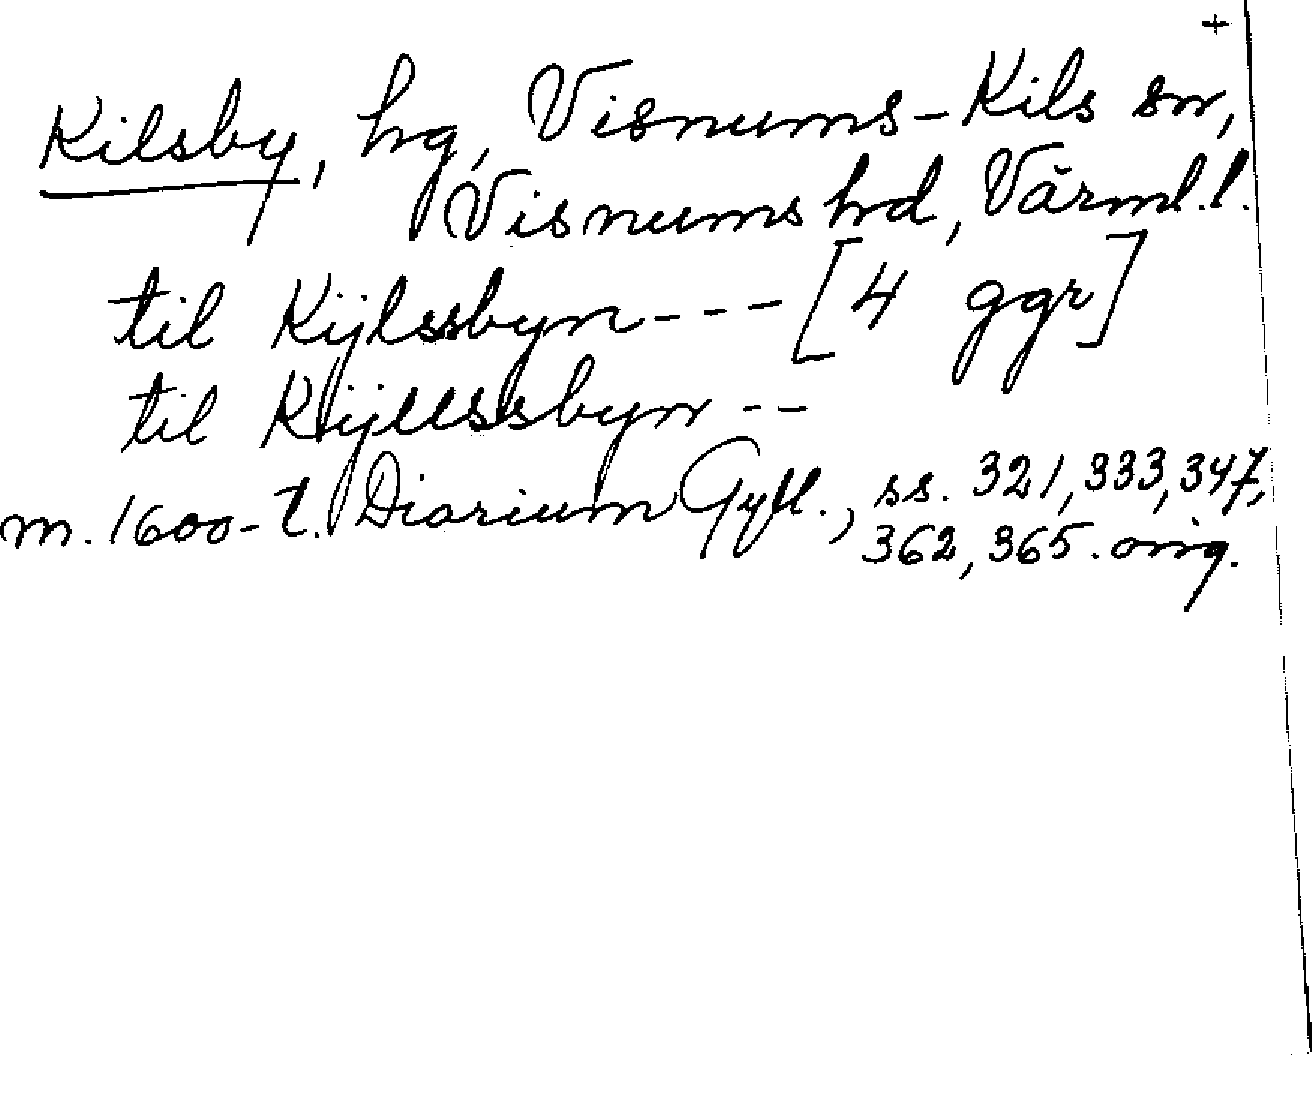 +
Kilsby, hg, Visnums-Kils sn,
Visnums hd, Värml. l.
til Kijlssbyn --- [4 ggr]
til Kijllssbyn --
m. 1600-t. Diarium Gyll., ss. 321, 333, 347,
362, 365. orig.